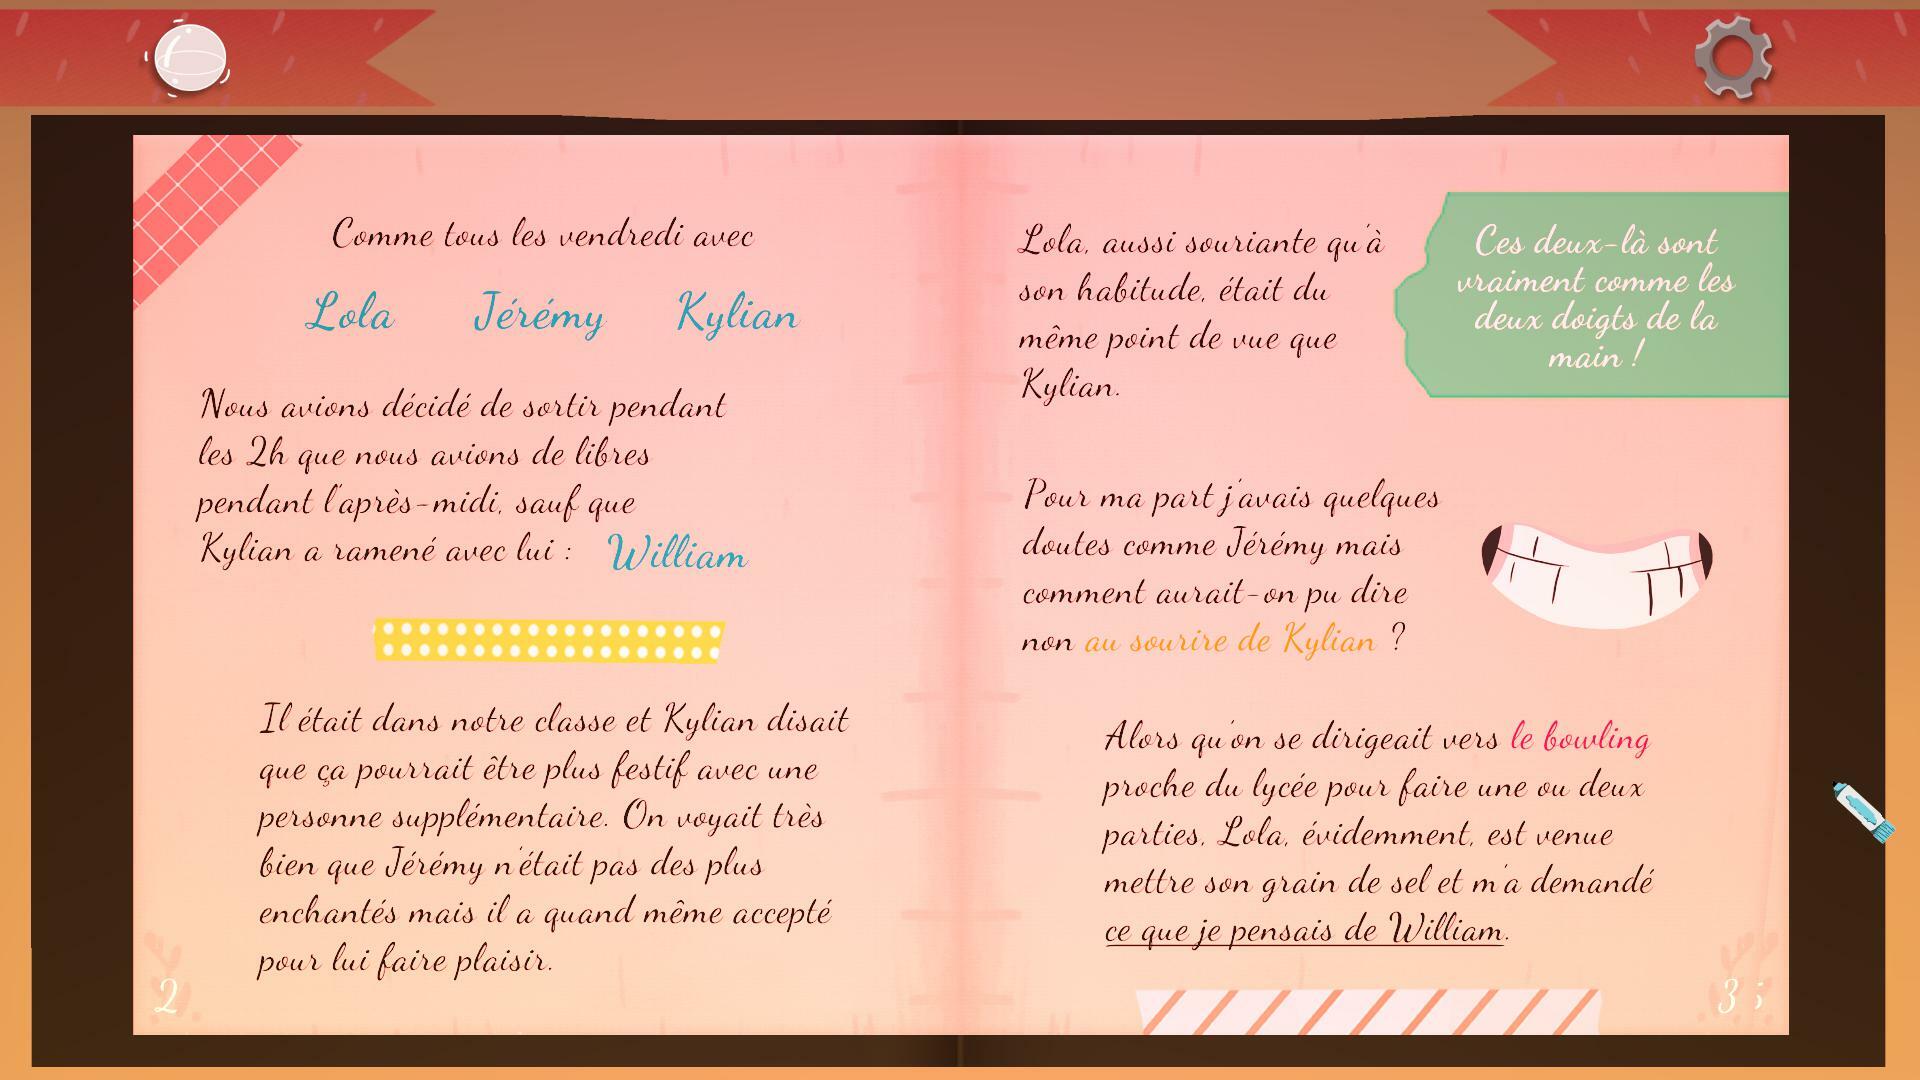 Comme tous les vendredi avec
Lola Jérémy Kylian
Nous avions décidé de sortir pendant
les 2h que nous avions de libres
pendant l'après-midi, sauf que
Kylian a ramené avec lui : William
Il était dans notre classe et Kylian disait
que ça pourrait être plus festif avec une
personne supplémentaire. On voyait très
bien que Jérémy n'était pas des plus
enchantés mais il a quand même accepté
pour lui faire plaisir.
2
Lola, aussi souriante qu'à
son habitude, était du
même point de vue que
Kylian.
Ces deux-là sont
vraiment comme les
deux doigts de la
main !
Pour ma part j'avais quelques
doutes comme Jérémy mais
comment aurait-on pu dire
non au sourire de Kylian ?
Alors qu'on se dirigeait vers le bowling
proche du lycée pour faire une ou deux
parties, Lola, évidemment, est venue
mettre son grain de sel et m'a demandé
ce que je pensais de William.
3